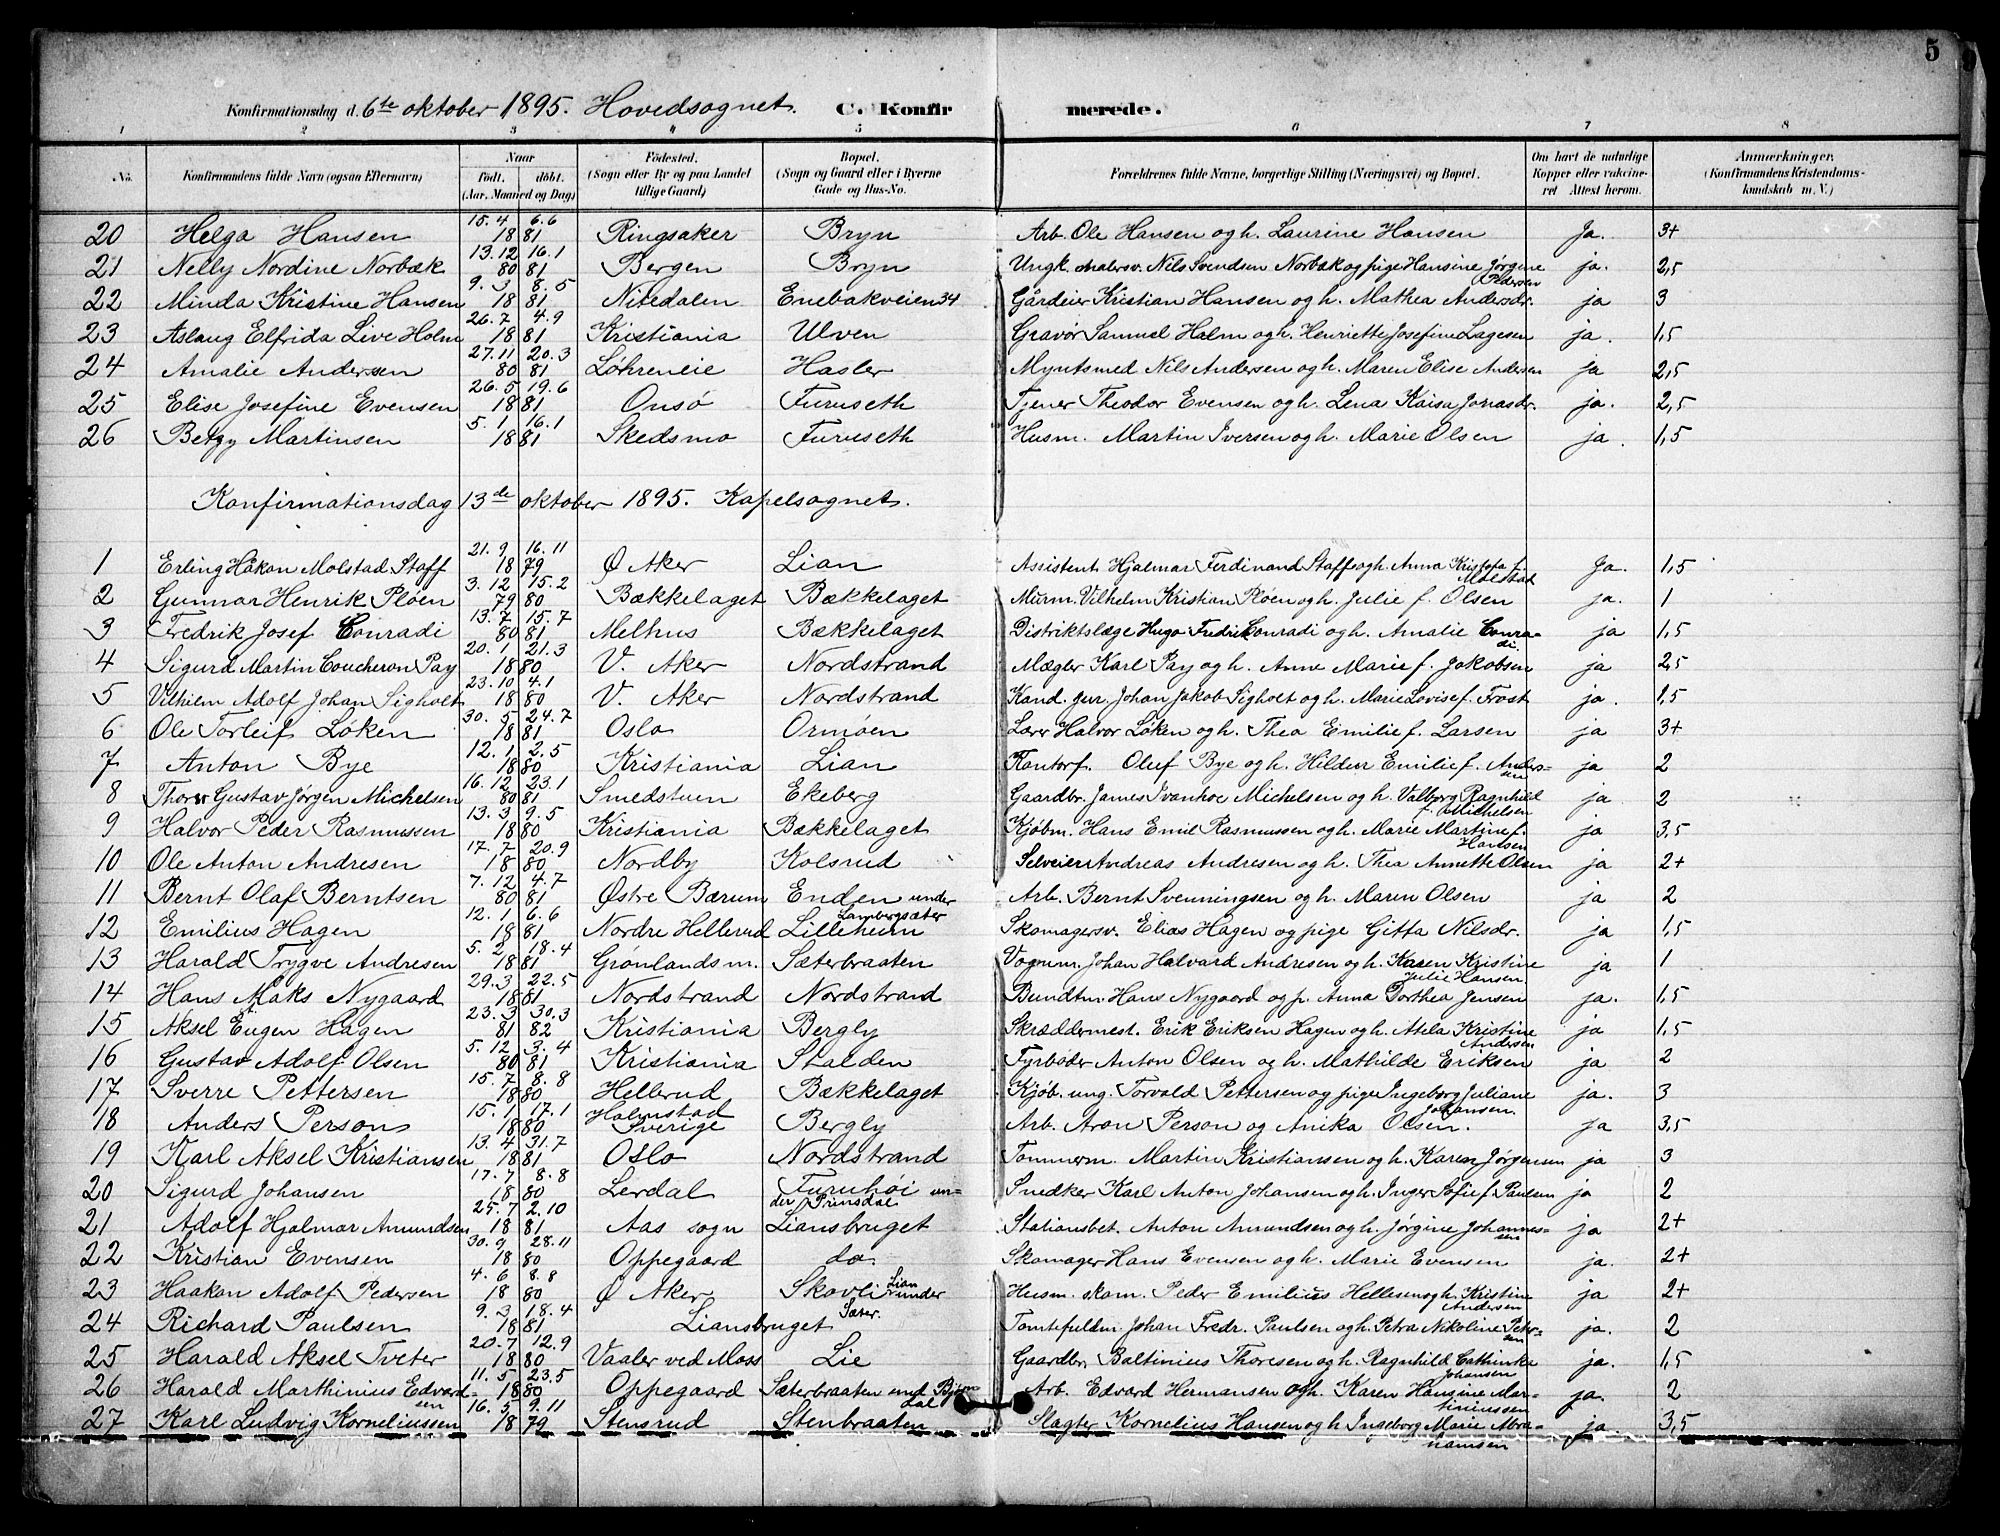 5
Konfirmationsdag d. 6te oktober 1895. Hovedsognet. C. Konfirmerede.
1 2 3 4 5 6 7 8
No. Konfirmandens fulde Navn (ogsaa Efternavn) Naar født. døbt. (Aar, Maaned og Dag) Fødested. (Sogn eller By og paa Landet tillige Gaard) Bopæl. (Sogn og Gaard eller i Byerne Gade og Hus-No.) Forældrenes fulde Navne, borgerlige Stilling (Næringsvei) og Bopæl. Om havt de naturlige Kopper eller vaccineret Attest herom. Anmærkninger. (Konfirmandens Kristendomskundskab m. V.)
20 Helga Hansen 15.4 6.6 1881 Ringsaker Bryn Arb. Ole Hansen og h. Laurine Hansen Ja. 3+
21 Nelly Nordine Norbæk 13.12 80 16.1 81 Bergen Bryn Ungk. malersv. Nils Svendsen Norbæk og pige Hansine Jørgine Pedersen ja. 2,5
22 Minda Kristine Hansen 9.3 8.5 1881 Nitedalen Enebakveien 34 Gårdeier Kristian Hansen og h. Mathea Andersdr. ja 3
23 Aslaug Elfrida Live Holm 26.7 4.9 1881 Kristiania Ulven Gravør Samuel Holm og h. Henriette Josefine Lagesen ja. 1,5
24 Amalie Andersen 27.11 80 20.3 81 Løhreneie Hasler Myntsmed Nils Andersen og h. Maren Elise Andersen ja 2,5
25 Elise Josefine Evensen 26.5 19.6 1881 Onsö Furuseth Tjener Theodor Evensen og h. Lena Kaisa Jonasdr. ja. 2,5
26 Betzy Martinsen 5.1 16.1 1881 Skedsmo Furuseth Husm. Martin Iversen og h. Marie Olsen ja. 1,5
Konfirmationsdag 13de oktober 1895. Kapelsognet.
1 Erling Håkon Molstad Staff 21.9 16.11 1879 Ø Aker Lian Assistent. Hjalmar Ferdinand Staff og h. Anna Kristofa f. Molstad Ja. 1,5
2 Gunnar Henrik Pløen 3.12 79 15.2 80 Bækkelaget Bækkelaget Murm. Vilhelm Kristian Pløen og h. Julie f. Olsen ja. 1
3 Fredrik Josef Conradi 13.7 80 15.7 81 Melhus Bækkelaget Distriktslæge Hugo Fredrik Conradi og h. Amalie Conradi ja 1,5
4 Sigurd Martin Coucheron Pay 20.1 21.3 1880 V. Aker Nordstrand Mægler Karl Pay og h. Anne Marie f. Jakobsen ja 2,5
5 Vilhelm Adolf Johan Sigholt 23.10 4.1 1880 V. Aker Nordstrand Kand. jur. Johan Jakob Sigholt og h. Marie Lovise f. Frost ja. 1,5
6 Ole Torleif Løken 30.5 24.7 1881 Oslo Ormøen Lærer Halvor Løken og h. Thea Emilie f. Larsen ja 3+
7 Anton Bye 12.1 2.5 1880 Kristiania Lian Kontorf. Oluf Bye og h. Hildur Emilie f. Andersen ja 2
8 Thorer Gustav Jørgen Michelsen 16.12 80 23.1 81 Smedstuen Ekeberg Gaardbr. James Ivanhoe Michelsen og h. Valborg Ragnhild f. Michelsen ja. 2
9 Halvor Peder Rasmussen 13.3 9.5 1880 Kristiania Bækkelaget Kjøbm. Hans Emil Rasmussen og h. Marie Martine f. Hansen ja 3,5
10 Ole Anton Andresen 17.7 20.9 1880 Nordby Kolsrud Selveier Andreas Andresen og h. Thea Annette Olsen ja 2+
11 Bernt Olaf Berntsen 7.12 80 4.7 81 Østre Bærum Enden under Lambergsæter Arb. Bernt Svenningsen og h. Maren Olsen ja 2
12 Emilius Hagen 12.1 6.6 1881 Nordre Hellerud Lilleheim Skomagersv. Elias Hagen og pige Gitta Nilsdr. ja 1,5
13 Harald Trygve Andresen 5.2 18.4 1881 Grønlands m. Sæterbraaten Vognm. Johan Halvard Andresen og h. Karen Kristine Julie Hansen ja 1
14 Hans Maks Nygaard 29.3 22.5 1881 Nordstrand Nordstrand Bundtm. Hans Nygaard og p. Anna Dorthea Jensen ja. 1,5
15 Aksel Eugen Hagen 23.3 81 30.3 82 Kristiania Bergly Skræddermest. Erik Eriksen Hagen og h. Atela Kristine Andersen ja 1,5
16 Gustav Adolf Olsen 5.12 80 3.4 81 Kristiania Stalden Fyrbøder Anton Olsen og h. Mathilde Eriksen ja 2
17 Sverre Pettersen 15.7 8.8 1880 Hellerud Bækkelaget Kjøb. ung. Torvald Pettersen og pige Ingeborg Juliane Johansen. ja. 3
18 Anders Person 15.1 17.1 1880 Halmstad Sverige Bergly Arb. Aron Person og Anika Olsen. ja 3,5
19 Karl Aksel Kristiansen 13.4 31.7 1881 Oslo Nordstrand Tommerm. Martin Kristiansen og h. Karen Jørgensen ja 3
20 Sigurd Johansen 17.7 8.8 1880 Lerdal Furuhøi under Prinsdal Snedker Karl Anton Johansen og h. Inger Sofie f. Paulsen ja 2
21 Adolf Hjalmar Amundsen 25.7 2.10 1881 Aas sogn Liansbruget Stationsbet. Anton Amundsen og h. Jørgine Johannessen ja 2+
22 Kristian Evensen 30.9 28.11 1880 Oppegaard do. Skomager Hans Evensen og h. Marie Evensen ja. 2+
23 Haakon Adolf Pedersen 4.6 8.8 1880 Ø Aker Skovli under Lian Husm. skom. Peder Emilius Hellesen og h. Kristine Andersen ja 2+
24 Richard Paulsen 9.3 18.4 1881 Liansbruget Sæter. Tomtefuldm. Johan Fredr. Paulsen og h. Petra Nikoline Petersen ja. 2
25 Harald Aksel Tveter 20.7 12.9 1880 Vaaler ved Moss Lie Gaardbr. Baltinius Thoresen og h. Ragnhild Cathinka Johansen ja. 1,5
26 Harald Marthinius Edvardsen 11.5 23.5 1880 Oppegaard Sæterbraaten und. Bjørndal Arb. Edvard Hermansen og h. Karen Hansine Martiniussen ja. 2
27 Karl Ludvig Korneliussen 16.5 9.11 1879 Stensrud Stenbraaten Slagter Kornelius Hansen og h. Ingeborg Marie Abrahamsen ja. 3,5